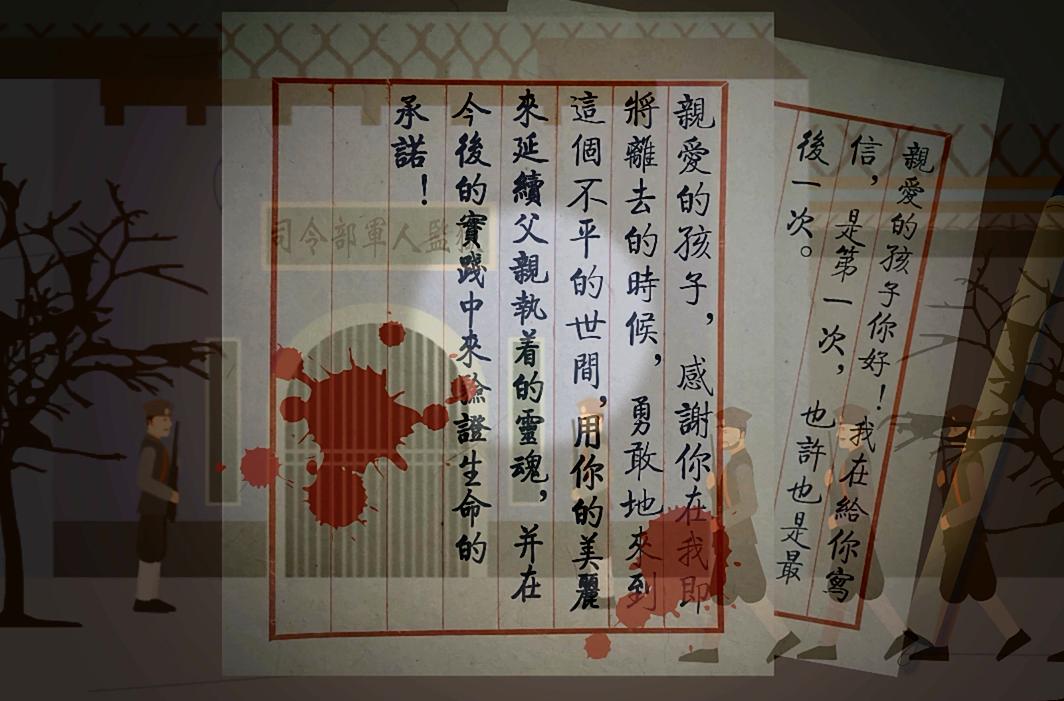 親愛的孩子你好！我在給你寫
信，是第一次，也許也是最
後一次。
親愛的孩子，感謝你在我即
將離去的時候，勇敢地來到
這個不平的世間，用你的美麗
來延續父親執着的靈魂，并在
今後的實踐中來驗證生命的
承諾！
司令部軍人監獄